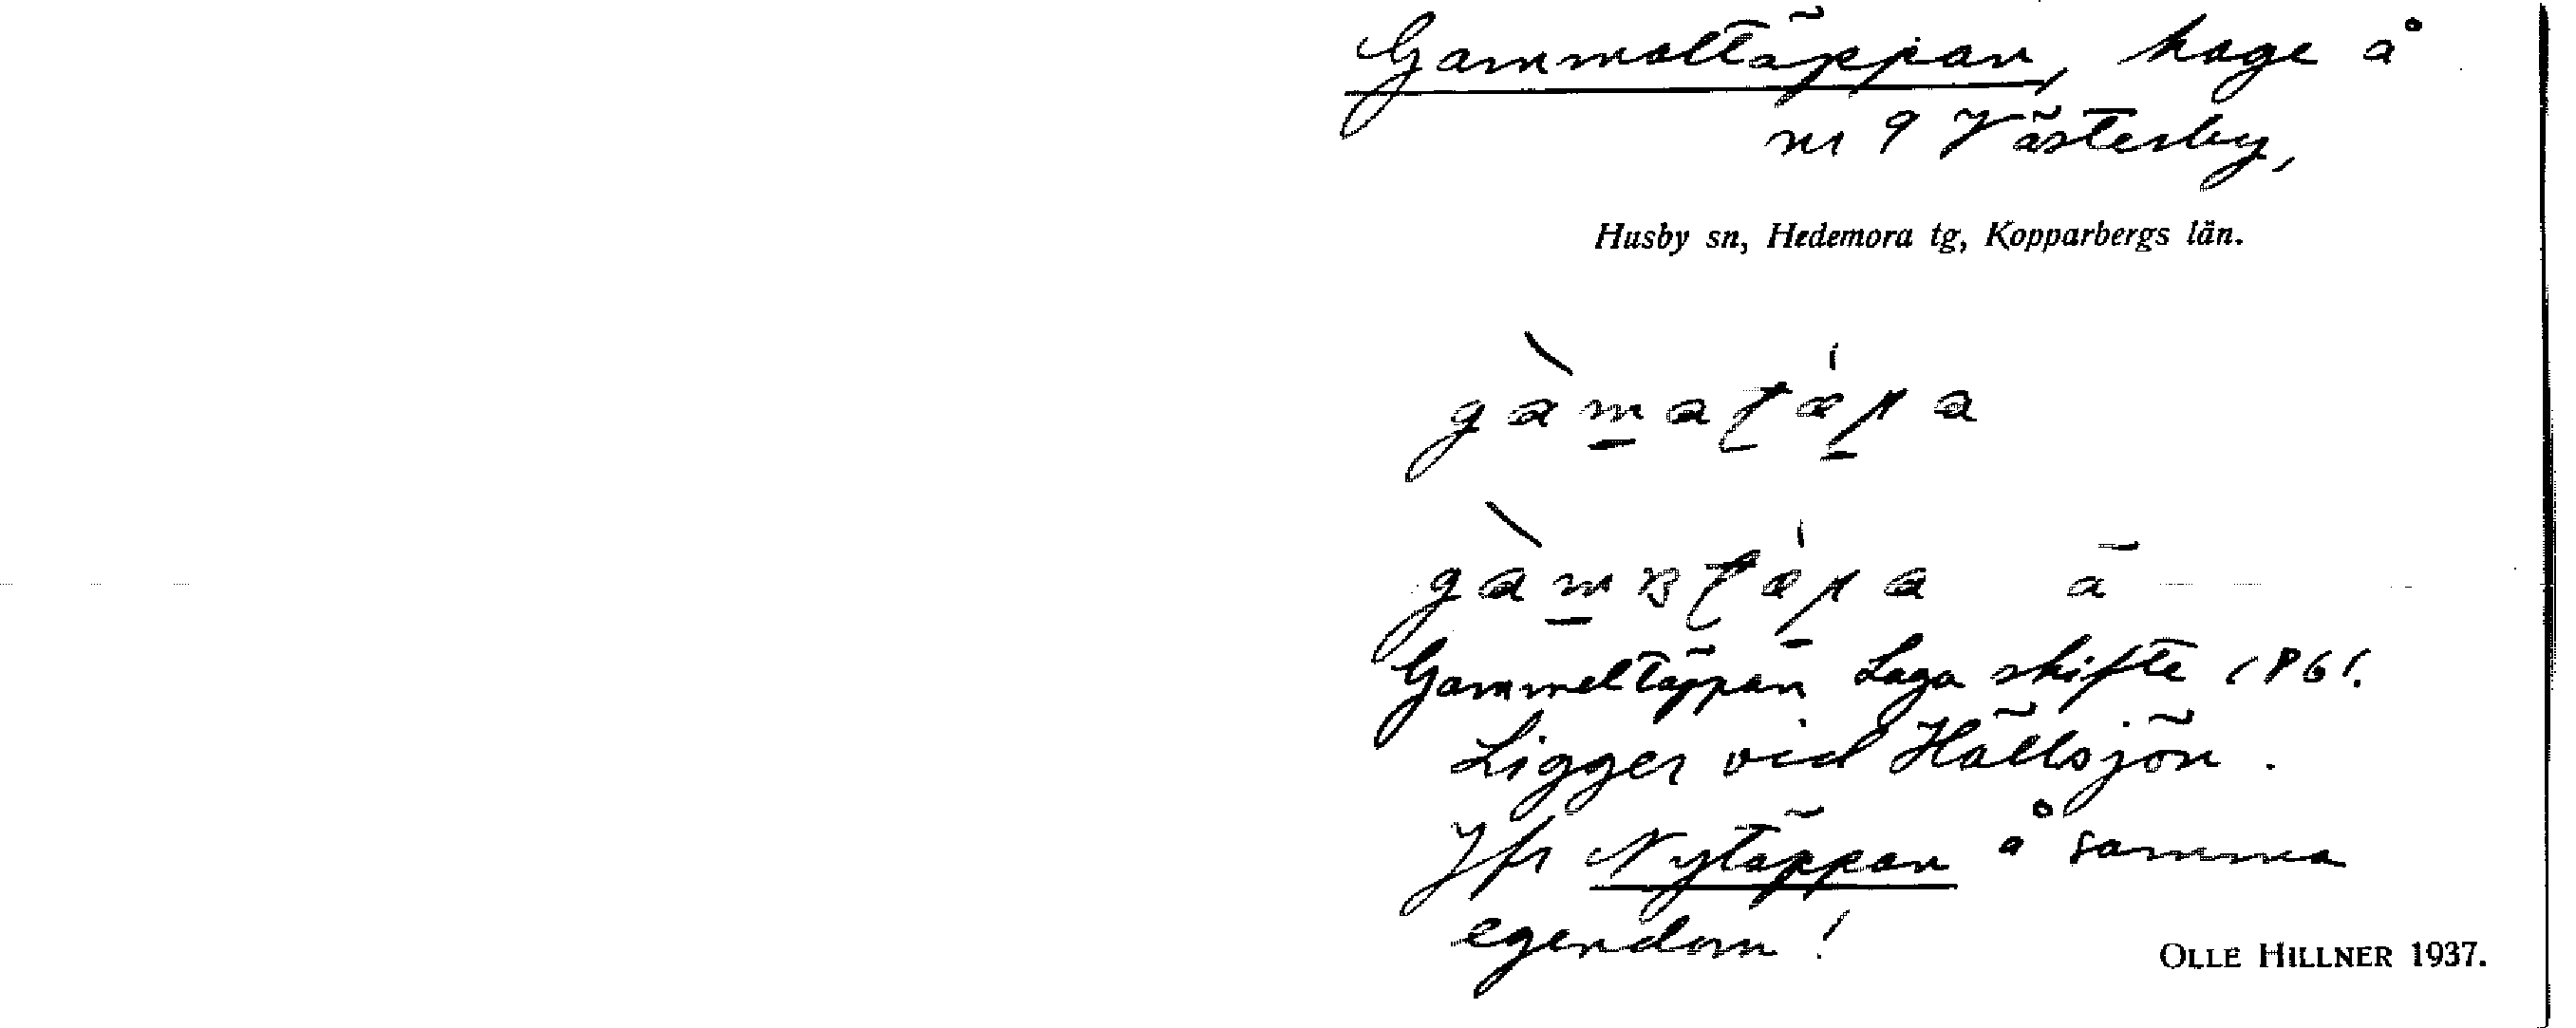 Gammaltäppan, hage å
nr 9 Västerby,
Husby sn, Hedemora tg, Kopparbergs län.
Gammeltäppan Laga skifte 1861.
Ligger vid Hällsjön.
Jfr Nytäppan å samma
egendom!
OLLE HILLNER 1937.